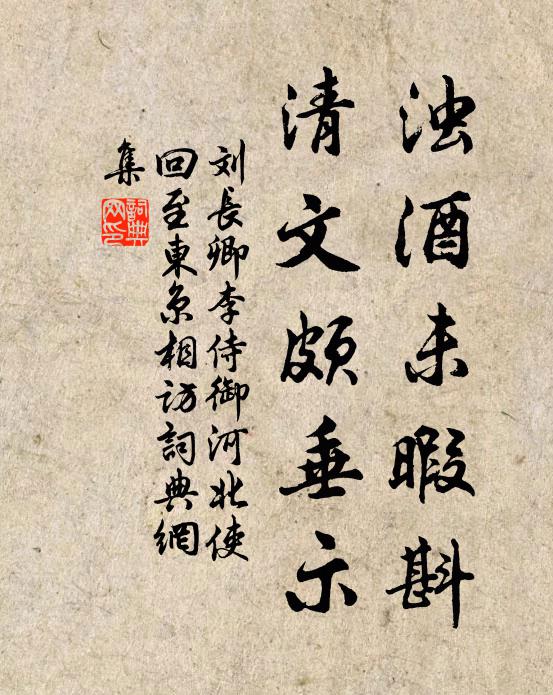 浊酒未暇斟
清文颇垂示
刘長卿李侍御河北使
回至東京相访詞典網
集
詞典网印